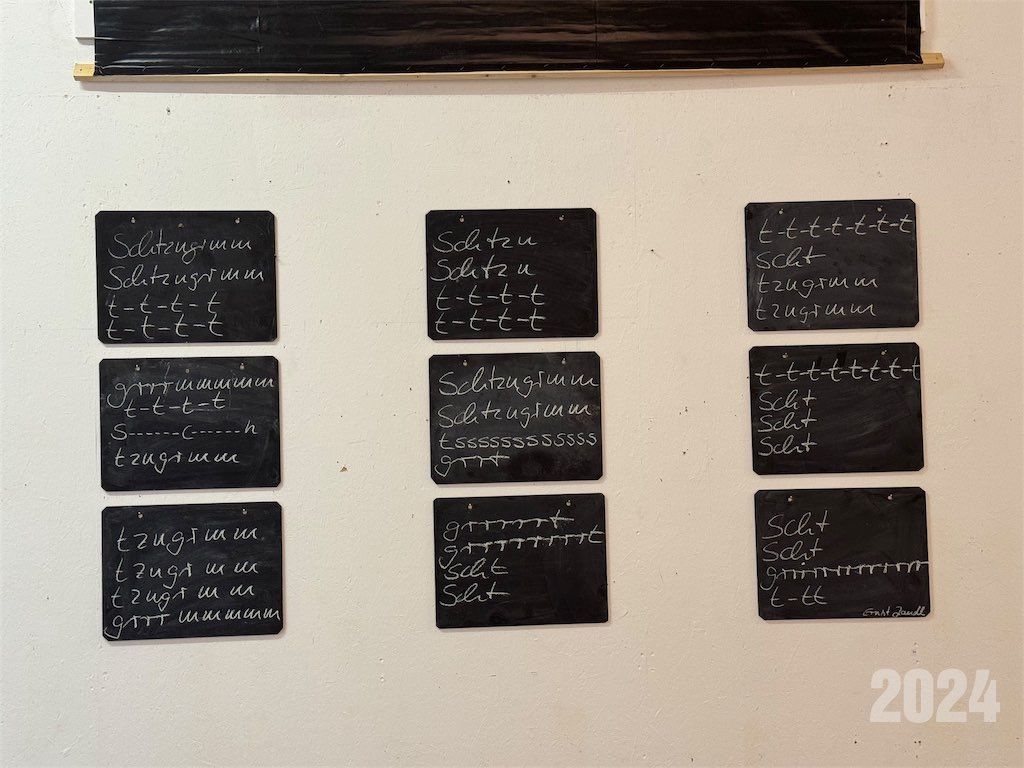 Schtzngrmm
Schtzngrmm
t-t-t-t
t-t-t-t
grrrmmmmmm
t-t-t-t
s------c------h
tzngrmm
tzngrmm
tzngrmm
tzngrmm
grrrmmmmmm
Schtzn
Schtzn
t-t-t-t
t-t-t-t
Schtzngrmm
Schtzngrmm
tssssssssssssss
grrt
grrrrrt
grrrrrrrrrt
Scht
Scht
t-t-t-t-t-t-t
scht
tzngrmm
tzngrmm
t-t-t-t-t-t-t-t
Scht
Scht
Scht
Scht
Scht
grrrrrrrrrrrrr
t-tt
Ernst Jandl
2024